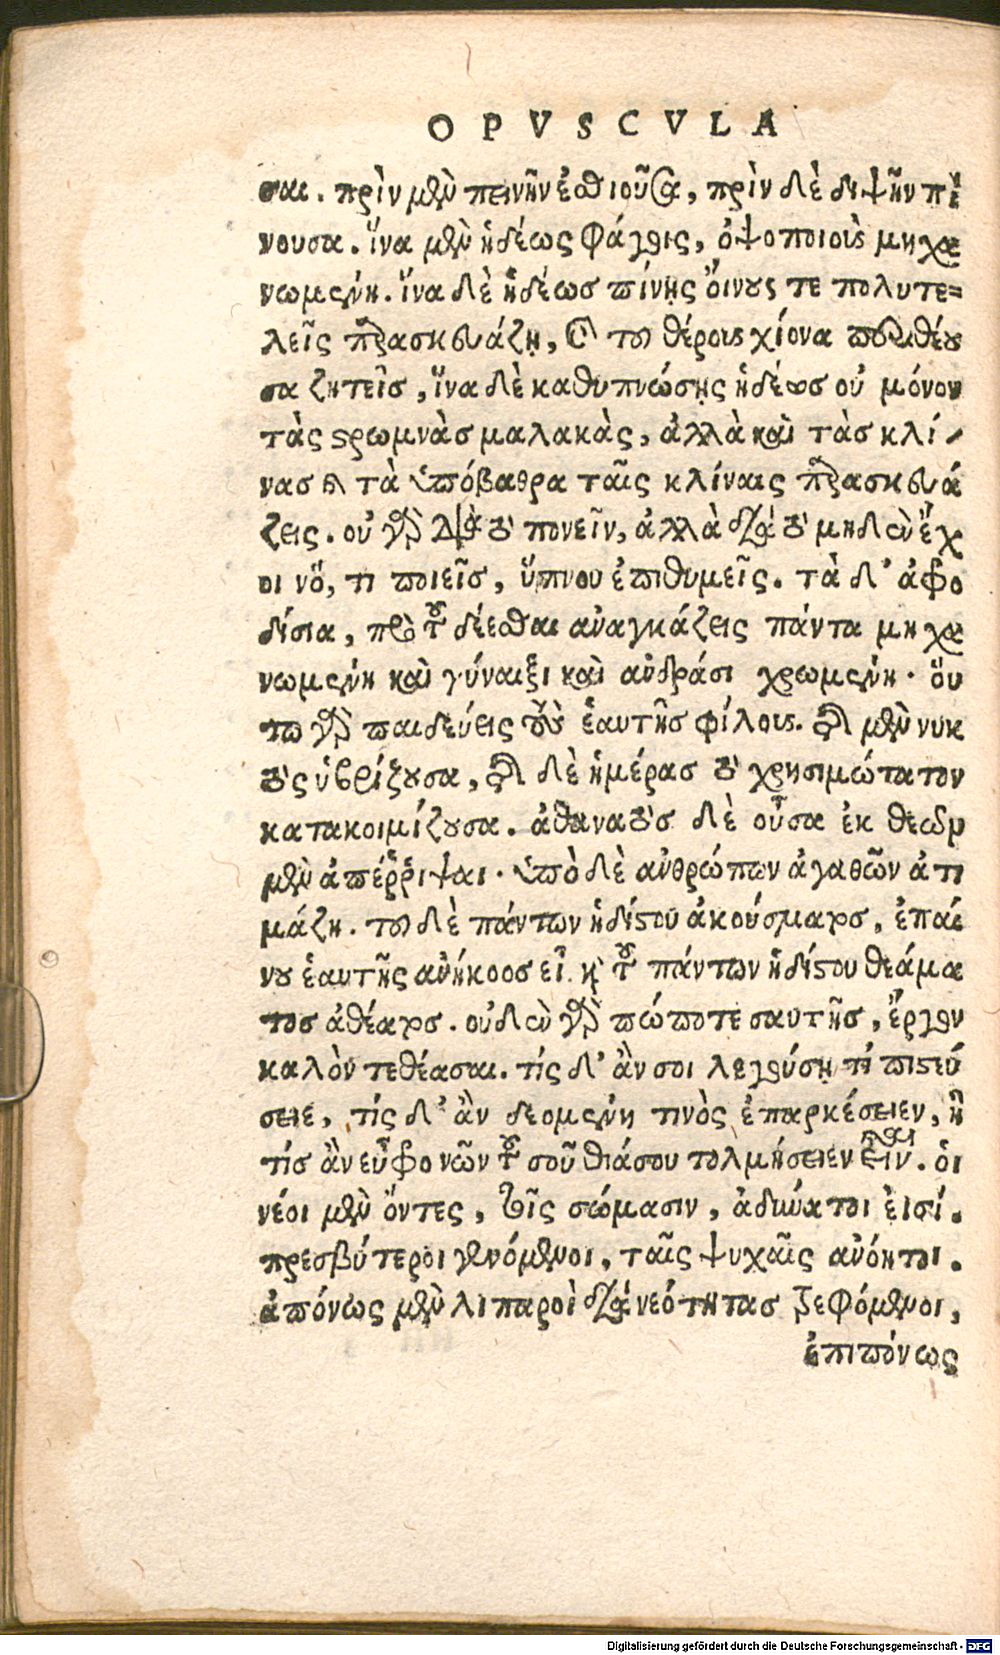 OPVSCVLA
σαι. πρὶν μὲν πεινῆν ἐσθιοῦσα, πρὶν δὲ διψῆν πί
νουσα. ἵνα μὲν ἡδέως φάγεις, ὀψοποιοὺς μηχα
νωμένη. ἵνα δὲ ἡδέως πίνῃς ὄινους τε πολυτε=
λεῖς παρασκευάζῃ, καὶ τοῦ θέρους χίονα περιθέου
σα ζητεῖς, ἵνα δὲ καθυπνώσῃς ἡδέως οὐ μόνον
τὰς στρωμνὰς μαλακὰς, ἀλλὰ καὶ τὰς κλί-
νας καὶ τὰ ὑπόβαθρα ταῖς κλίναις παρασκευά
ζεις. οὐ γὰρ διὰ τὸ πονεῖν, ἀλλὰ διὰ τὸ μηδὲν ἔχ
οι νὅ, τι ποιεῖς, ὕπνου ἐπιθυμεῖς. τὰ δ' ἀφρο
δίσια, πρὸ τοῦ δέεσθαι ἀναγκάζεις πάντα μηχα
νωμένη καὶ γύναιξι καὶ ἀνδράσι χρωμένη. ὅυ
τω γὰρ παιδεύεις τοὺς ἑαυτῆς φίλους. τῆς μὲν νυκ
τὸς ὑβρίζουσα, τῆς δὲ ἡμέρας τὸ χρησιμώτατον
κατακοιμίζουσα. ἀθανατὸς δὲ οὖσα ἐκ θεῶν
μὲν ἀπέῤῥιψαι. ὑπὸ δὲ ἀνθρώπων ἀγαθῶν ἀτι
μάζη. τοῦ δὲ πάντων ἡδίστου ἀκούσματος, ἐπαί
νου ἑαυτῆς ἀνήκοος εἶ. καὶ τοῦ πάντων ἡδίστου θεάμα
τος ἀθέατος. οὐδὲν γὰρ πώποτε σαυτῆς, ἔργον
καλὸν τεθέασαι. τίς δ' ἂν σοι λεγούσῃ τὶ πιστεύ
σειε, τίς δ' ἂν δεομένη τινὸς ἐπαρκέσειεν, ἢ
τίς ἂν εὖφρονῶν τοῦ σοῦ θιάσου τολμήσειεν εἶναι. ὁι
νέοι μὲν ὄντες, τοῖς σώμασιν, ἀδύνατοι ἐισί.
πρεσβύτεροι γενόμενοι, ταῖς ψυχαῖς ἀνόητοι.
ἀπόνως μὲν λιπαροὶ διὰ νεότητας τρεφόμενοι,
ἐπιπόνως
Digitalisierung gefördert durch die Deutsche Forschungsgemeinschaft - DFG